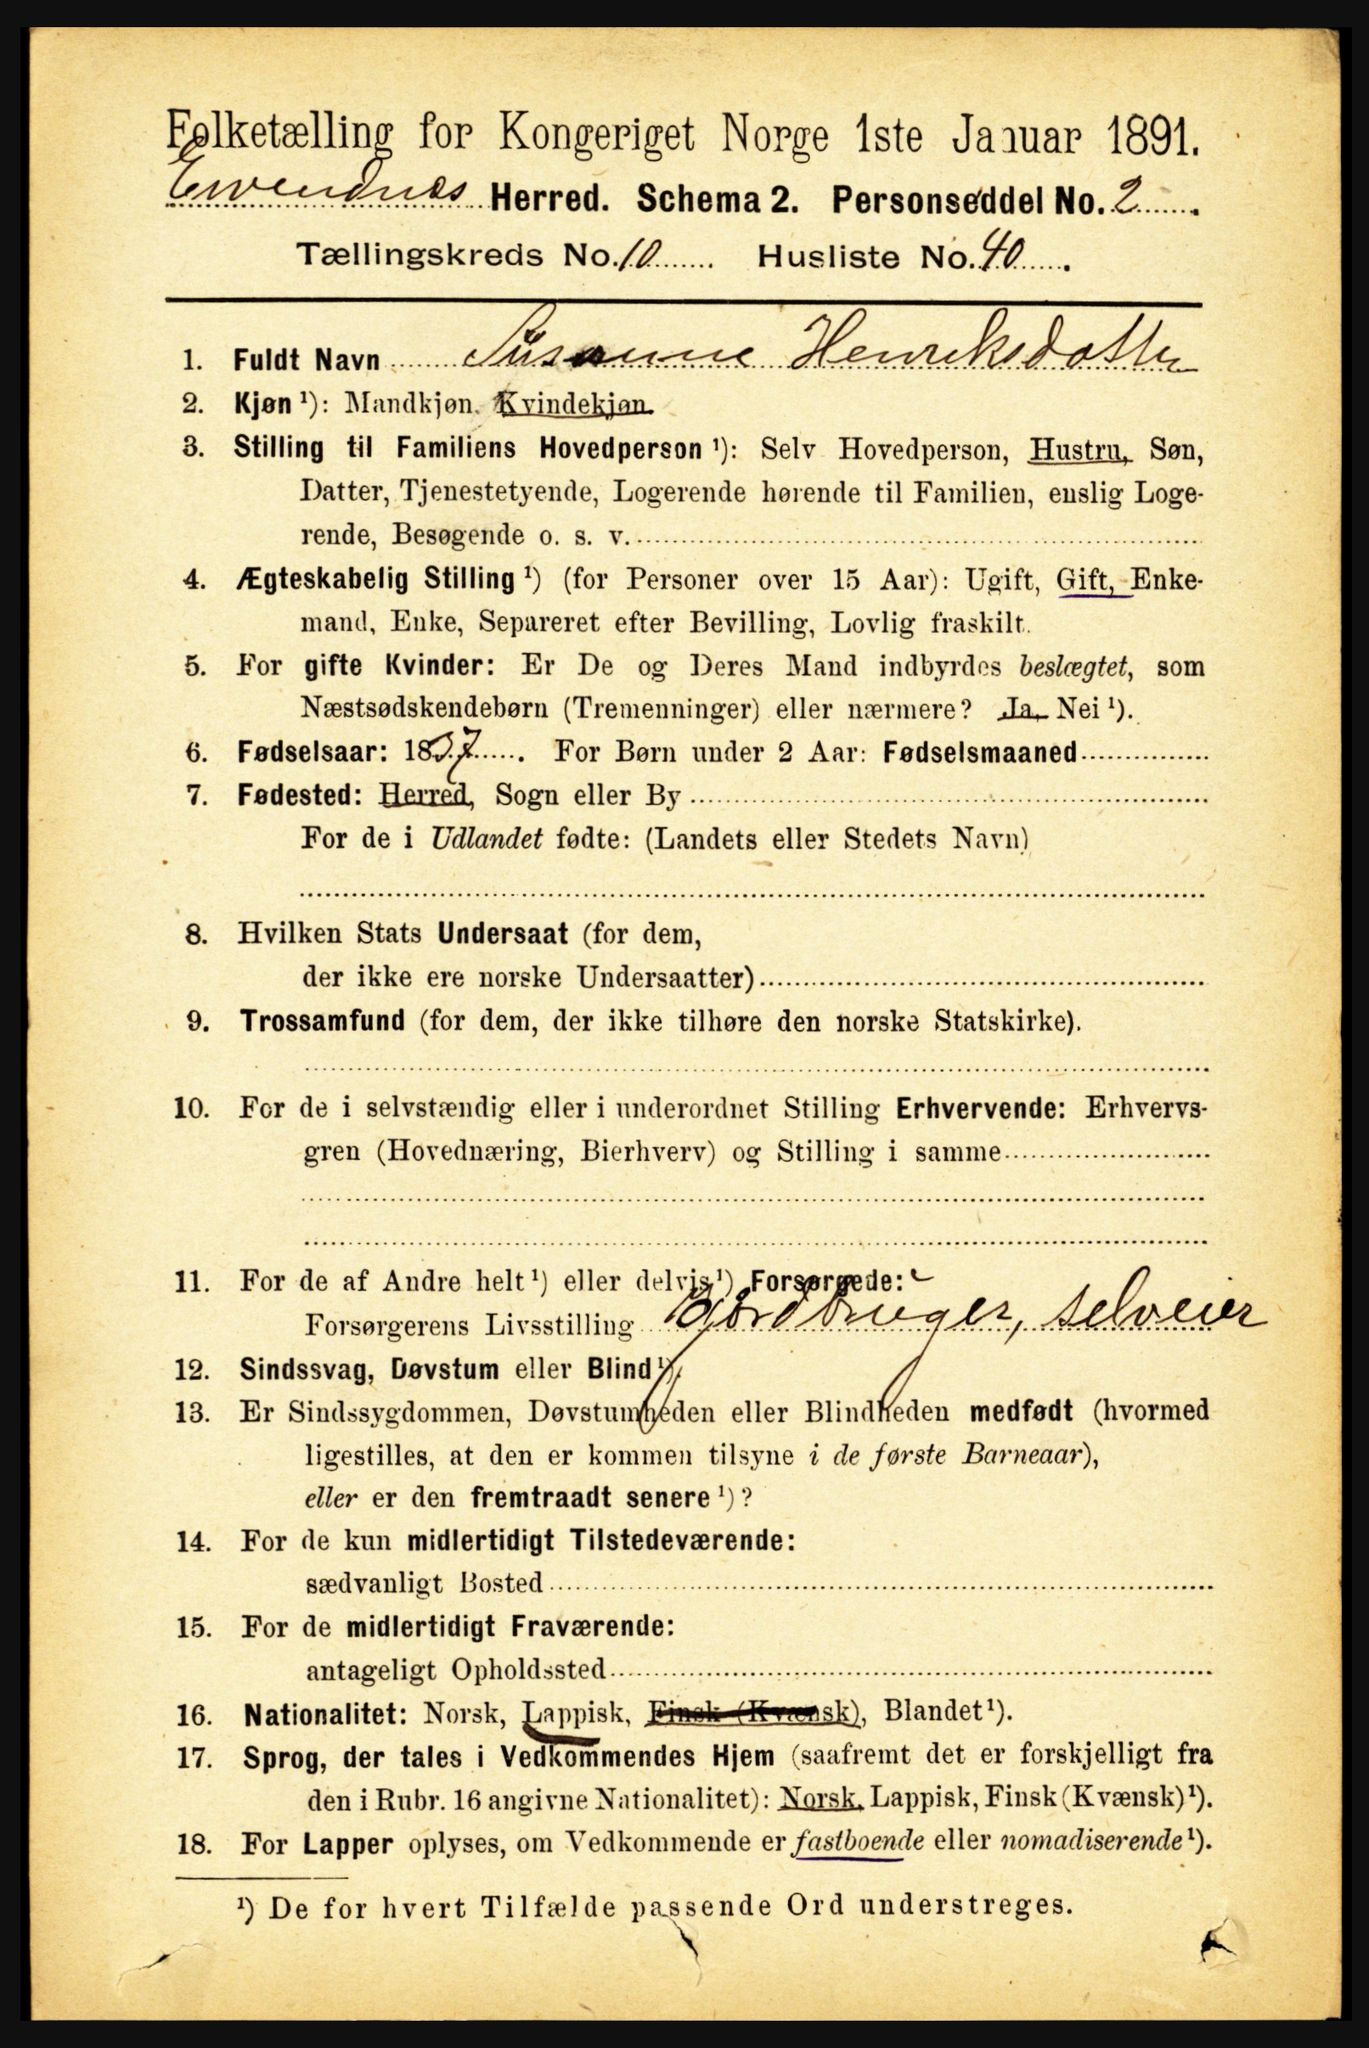 Folketælling for Kongeriget Norge 1ste Januar 1891.
Evendnes Herred. Schema 2. Personseddel No. 2.
Tællingskreds No. 10. Husliste No. 40.
1. Fuldt Navn Susanne Henriksdatter
2. Kjøn ¹): Mandkjøn, Kvindekjøn.
3. Stilling til Familiens Hovedperson ¹): Selv Hovedperson, Hustru, Søn,
Datter, Tjenestetyende, Logerende hørende til Familien, enslig Loge-
rende, Besøgende o. s. v.
4. Ægteskabelig Stilling ¹) (for Personer over 15 Aar): Ugift, Gift, Enke-
mand, Enke, Separeret efter Bevilling, Lovlig fraskilt.
5. For gifte Kvinder: Er De og Deres Mand indbyrdes beslægtet, som
Næstsødskendebørn (Tremenninger) eller nærmere? Ja, Nei ¹).
6. Fødselsaar: 1837. For Børn under 2 Aar: Fødselsmaaned
7. Fødested: Herred, Sogn eller By
For de i Udlandet fødte: (Landets eller Stedets Navn)
8. Hvilken Stats Undersaat (for dem,
der ikke ere norske Undersaatter)
9. Trossamfund (for dem, der ikke tilhøre den norske Statskirke).
10. For de i selvstændig eller i underordnet Stilling Erhvervende: Erhvervs-
gren (Hovednæring, Bierhverv) og Stilling i samme
11. For de af Andre helt ¹) eller delvis ¹) Forsørgede:
Forsørgerens Livsstilling Gjordbruger, selveier
12. Sindssvag, Døvstum eller Blind ¹).
13. Er Sindssygdommen, Døvstumheden eller Blindheden medfødt (hvormed
ligestilles, at den er kommen tilsyne i de første Barneaar),
eller er den fremtraadt senere ¹)?
14. For de kun midlertidigt Tilstedeværende:
sædvanligt Bosted
15. For de midlertidigt Fraværende:
antageligt Opholdssted
16. Nationalitet: Norsk, Lappisk, Finsk (Kvænsk), Blandet ¹).
17. Sprog, der tales i Vedkommendes Hjem (saafremt det er forskjelligt fra
den i Rubr. 16 angivne Nationalitet): Norsk, Lappisk, Finsk (Kvænsk) ¹).
18. For Lapper oplyses, om Vedkommende er fastboende eller nomadiserende ¹).
¹) De for hvert Tilfælde passende Ord understreges.